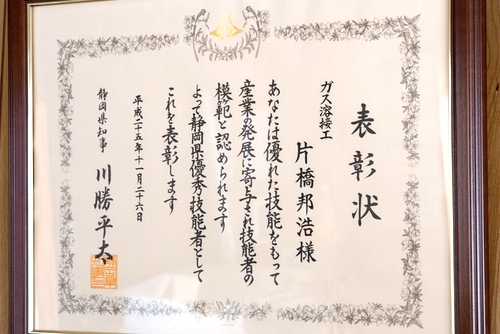 表彰状
ガス溶接工
片橋邦浩様
あなたは優れた技能をもって
産業の発展に寄与され技能者の
模範と認められます
よって静岡県優秀技能者として
これを表彰します
平成二十五年十一月二十六日
静岡県知事 川勝平太